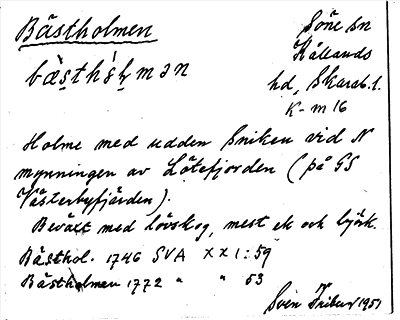 Bästholmen
Söne sn
Kållands
hd, Skarab. l.
K-m 16
bästhólman
Holme med udden Sniken vid N
mynningen av Lötefjorden (på GS
Västerbyfjärden).
Beväxt med lövskog, mest ek och björk.
Bästhol. 1746 SVA XX1:59
Bästholmen 1772 " " 53
Sven 1951